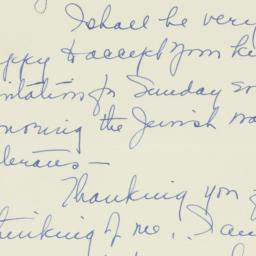 I shall be very
ppy to accept your ki
ntation for Sunday
onoring the Jewish
terans —
Thanking you f
thinking of me, I am